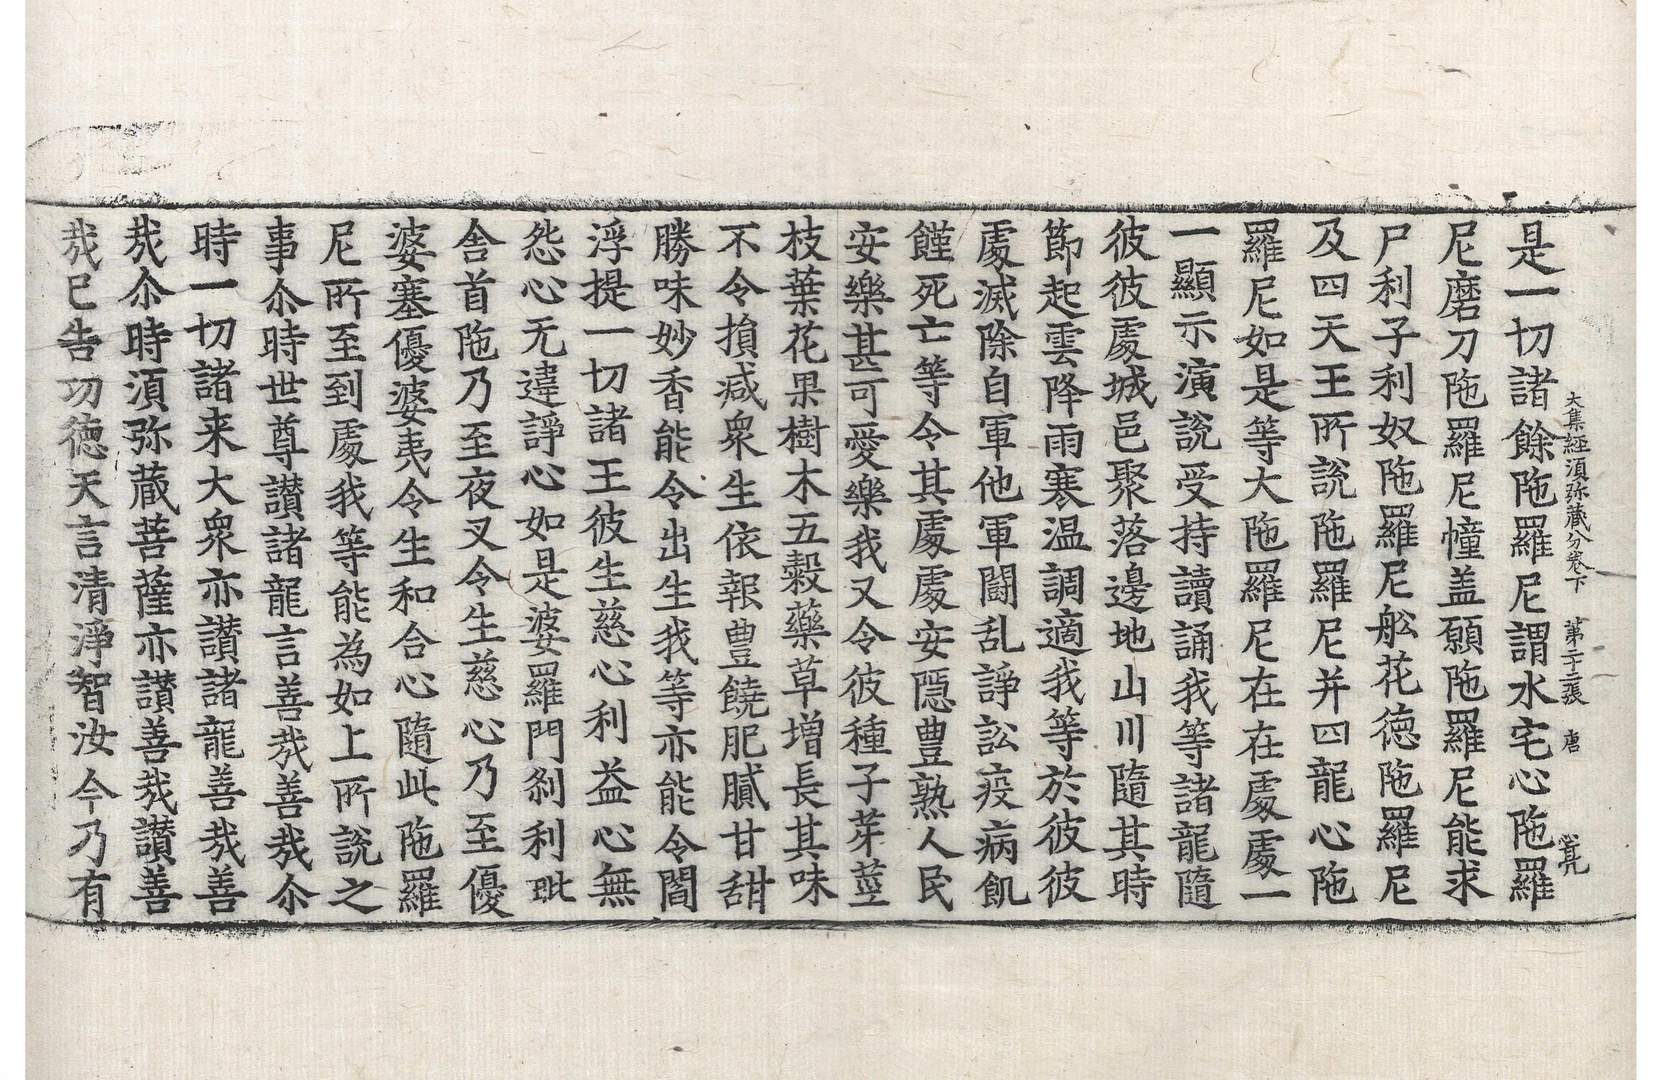 大集經須弥藏分卷下 第二十三張 唐
是一切諸餘陁羅尼謂水宅心陁羅
尼磨刀陁羅尼幢盖願陁羅尼能求
尸利子利奴陁羅尼舩花徳陁羅尼
及四天王所說陁羅尼并四龍心陁
羅尼如是等大陁羅尼在在處處一
一顯示演說受持讀誦我等諸龍隨
彼彼處城邑聚落邊地山川隨其時
節起雲降雨寒温調適我等於彼彼
處滅除自軍他軍鬪乱諍訟疫病飢
饉死亡等令其處處安隱豊熟人民
安樂甚可愛樂我又令彼種子芽莖
枝葉花果樹木五穀藥草増長其味
不令損减衆生依報豊饒肥膩甘甜
勝味妙香能令出生我等亦能令閻
浮提一切諸王彼生慈心利益心無
怨心无違諍心如是婆羅門刹利毗
舍首陁乃至夜叉令生慈心乃至優
婆塞優婆夷令生和合心隨此陁羅
尼所至到處我等能為如上所說之
事尒時世尊讃諸龍言善哉善哉尒
時一切諸来大衆亦讃諸龍善哉善
哉尒時須弥藏菩薩亦讃善哉讃善
哉已告功徳天言清淨智汝今乃有